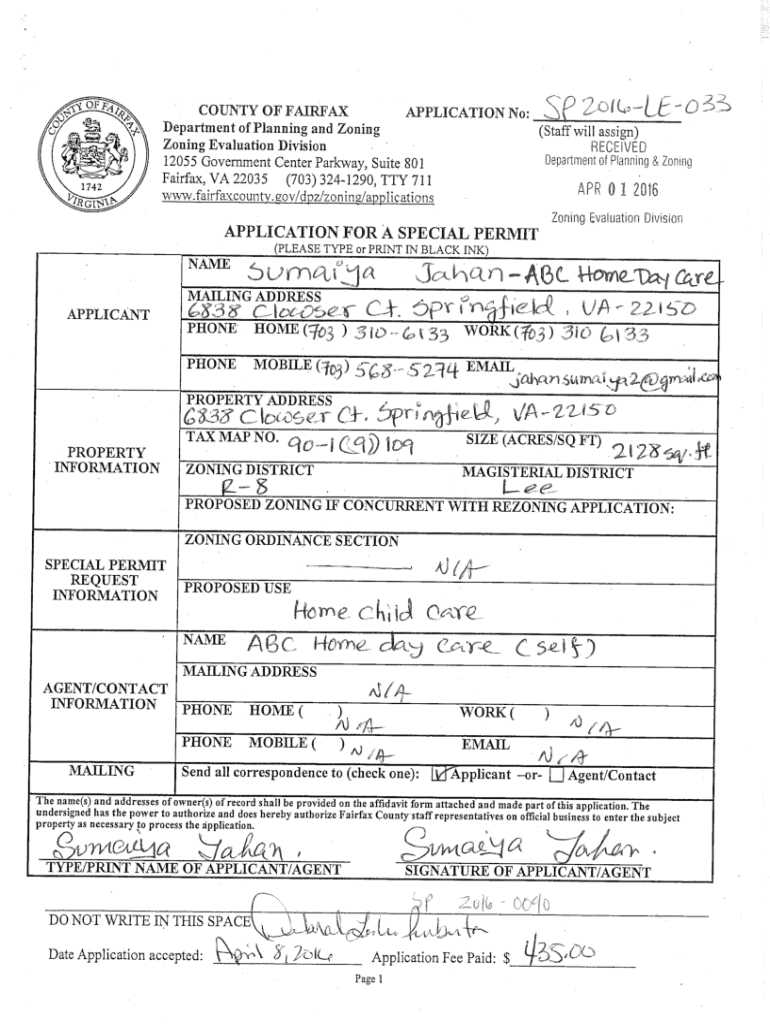 COUNTY OF FAIRFAX
Department of Planning and Zoning
Zoning Evaluation Division
12055 Government Center Parkway, Suite 801
Fairfax, VA 22035 (703) 324-1290, TTY 711
www.fairfaxcounty.gov/dpz/zoning/applications
COUNTY OF FAIRFAX
1742
VIRGINIA
APPLICATION No: SP 2016-LE-033
(Staff will assign)
RECEIVED
Department of Planning & Zoning
APR 01 2016
Zoning Evaluation Division
APPLICATION FOR A SPECIAL PERMIT
(PLEASE TYPE or PRINT IN BLACK INK)
APPLICANT
NAME Sumaiya Jahan - ABC Home Day Care
MAILING ADDRESS
6838 Clowser Ct. Springfield, VA-22150
PHONE HOME (703) 310-6133 WORK (703) 310 6133
PHONE MOBILE (703) 568-5274 EMAIL jahansumaiya2@gmail.com
PROPERTY INFORMATION
PROPERTY ADDRESS
6838 Clowser Ct. Springfield, VA-22150
TAX MAP NO. 90-1((9))109 SIZE (ACRES/SQ FT) 2128 sq. ft
ZONING DISTRICT MAGISTERIAL DISTRICT
R-8 Lee
PROPOSED ZONING IF CONCURRENT WITH REZONING APPLICATION:
SPECIAL PERMIT
REQUEST
INFORMATION
ZONING ORDINANCE SECTION
N/A
PROPOSED USE
Home Child Care
AGENT/CONTACT
INFORMATION
NAME ABC Home day care (self)
MAILING ADDRESS
N/A
PHONE HOME ( ) N/A WORK ( ) N/A
PHONE MOBILE ( ) N/A EMAIL N/A
MAILING
Send all correspondence to (check one): ☑ Applicant –or- ☐ Agent/Contact
The name(s) and addresses of owner(s) of record shall be provided on the affidavit form attached and made part of this application. The
undersigned has the power to authorize and does hereby authorize Fairfax County staff representatives on official business to enter the subject
property as necessary to process the application.
Sumaiya Jahan. Sumaiya Jahan.
TYPE/PRINT NAME OF APPLICANT/AGENT SIGNATURE OF APPLICANT/AGENT
SP 2016-0040
DO NOT WRITE IN THIS SPACE
Date Application accepted: April 8, 2016 Application Fee Paid: $ 435.00
Page 1